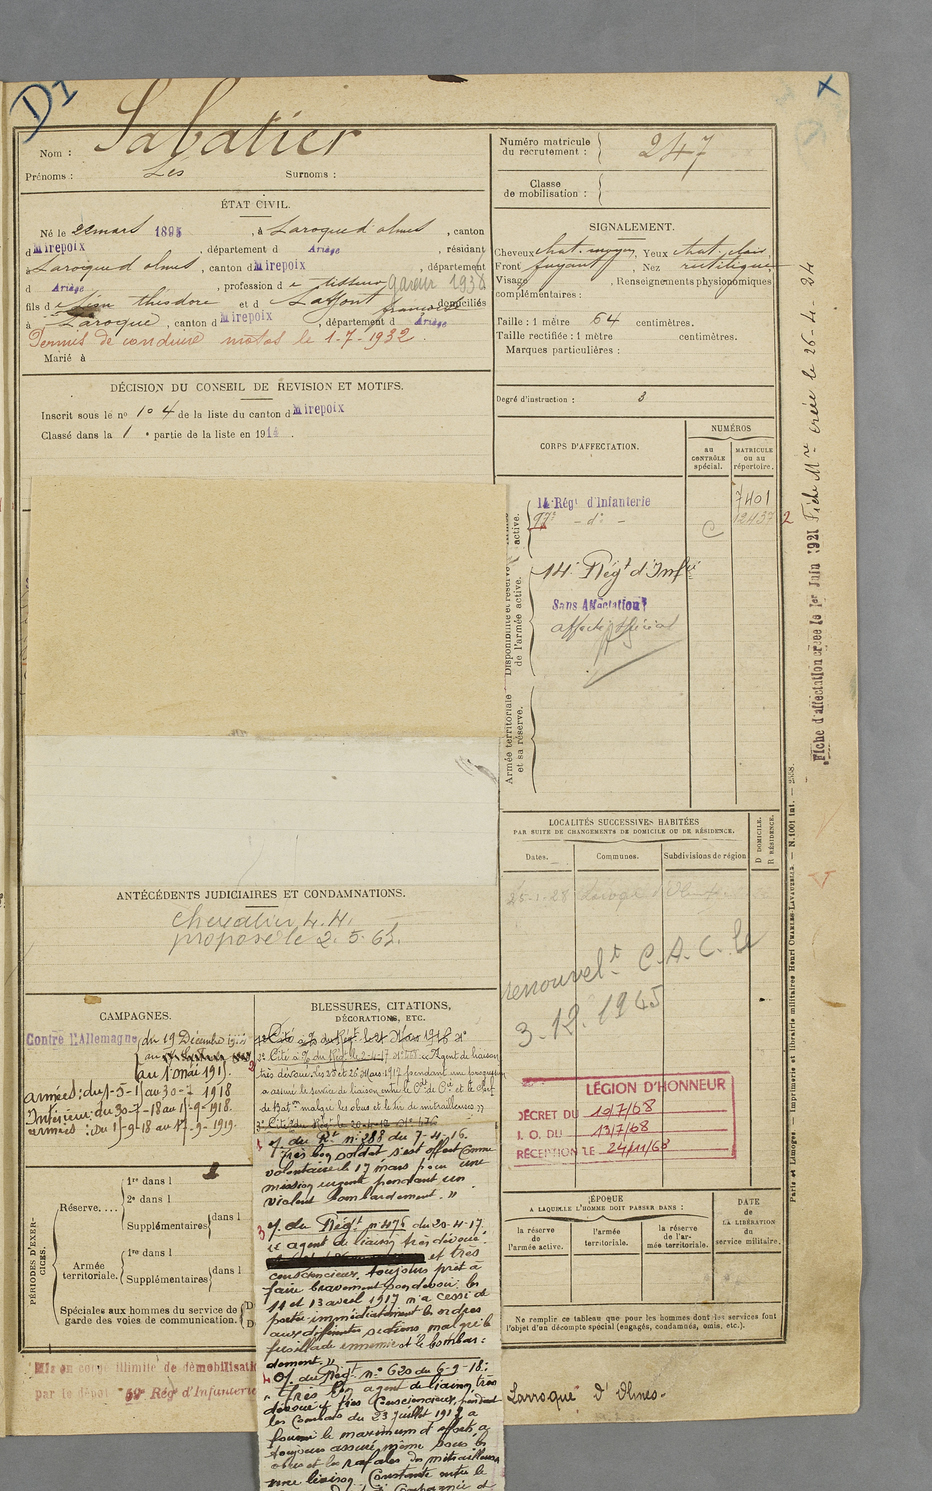 D2
Sabatier
Nom :
Prénoms :
Surnoms :
Numéro matricule du recrutement :
247
Classe de mobilisation :
ÉTAT CIVIL.
Né le 22 mars 1895, à Laroque d'olmes, canton
d Mirepoix, département d Ariège, résidant
à Laroque d'olmes, canton d Mirepoix, département
d Ariège, profession de tisseur gareur 1938
fils de Léon Théodore et d Laffont françoise domiciliés
à Laroque, canton d Mirepoix, département d Ariège
Permis de conduire motos le 1-7-1932.
Marié à
SIGNALEMENT.
Cheveux chat. moyen, Yeux chat. clair
Front fuyant, Nez rectiligne
Visage , Renseignements physionomiques
complémentaires :
Taille : 1 mètre 64 centimètres.
Taille rectifiée : 1 mètre centimètres.
Marques particulières :
Degré d'instruction : 3
DÉCISION DU CONSEIL DE REVISION ET MOTIFS.
Inscrit sous le n° 104 de la liste du canton d Mirepoix
Classé dans la 1e partie de la liste en 1914.
CORPS D'AFFECTATION.
NUMÉROS
au CONTRÔLE spécial.
MATRICULE ou au répertoire.
active.
14 Régt d'Infanterie
7401
- d° -
12437
C
2
Disponibilité et réserve de l'armée active.
14e Régt d'Infie
Sans Affectation
affecté spécial
Armée territoriale et sa réserve.
Fiche d'affectation créée le 1er Juin 1921 Fiche Mre créée le 26-4-34
LOCALITÉS SUCCESSIVES HABITÉES
PAR SUITE DE CHANGEMENTS DE DOMICILE OU DE RÉSIDENCE.
Dates.
Communes.
Subdivisions de région
D DOMICILE. R RÉSIDENCE.
25-1-28
renouvelt C.A.C. le
3.12.1945
ANTÉCÉDENTS JUDICIAIRES ET CONDAMNATIONS.
Chevalier L.H.
proposé le 2.5.62.
CAMPAGNES.
Contre l'Allemagne du 19 Décembre
au 1 mai 191
armées : du 1-5-1 au 30-7 1918
Intérieur : du 30-7-18 au 1-9-1918.
armées : du 1-9-18 au 17-9-1919.
BLESSURES, CITATIONS,
DÉCORATIONS, ETC.
2e Cité à l'o du Régt le 2-4-17 Agent de liaison
très dévoué. les 25 et 26 Mars 1917 pendant une
a assuré le service de liaison entre le Ct de Cie et le Chef
de Batn malgré les obus et le tir de mitrailleuses »
1
of. du Rt n° 288 du 7-4-16.
Très bon soldat s'est offert comme
volontaire le 17 mars pour une
mission urgente pendant un
violent bombardement. "
3
of du Régt n° 476 du 20-4-17.
agent de liaison très dévoué
et très
consciencieux, toujours prêt à
faire bravement son devoir. les
11 et 13 avril 1917 n'a cessé de
porter immédiatement les ordres
aux différentes sections malgré la
fusillade ennemie et le bombar-
dement. "
4
Of. du Régt n° 620 du 6-9-18 :
" Très bon agent de liaison, très
dévoué et très consciencieux, pendant
les combats du 23 juillet 1918 a
fourni le maximum d'efforts, a
toujours assuré, même sous les
obus et les rafales de mitrailleuses
une liaison constante entre le
LÉGION D'HONNEUR
DÉCRET DU 10/7/68
I. O. DU 13/7/68
RÉCEPTION LE 24/11/68
PÉRIODES D'EXERCICES.
Réserve....
1re dans l
2e dans l
Supplémentaires dans l
Armée territoriale.
1re dans l
Supplémentaires dans l
Spéciales aux hommes du service de garde des voies de communication.
D
D
ÉPOQUE
A LAQUELLE L'HOMME DOIT PASSER DANS :
la réserve de l'armée active.
l'armée territoriale.
la réserve de l'armée territoriale.
DATE de LA LIBÉRATION du service militaire.
Ne remplir ce tableau que pour les hommes dont les services font
l'objet d'un décompte spécial (engagés, condamnés, omis, etc.).
Mis en congé illimité de démobilisati
par le dépôt 59e Régt d'Infanterie
Larroque d'Olmes-
Paris et Limoges. — Imprimerie et librairie militaires Henri CHARLES-LAVAUZELLE. — N. 1001 int. — 2568.